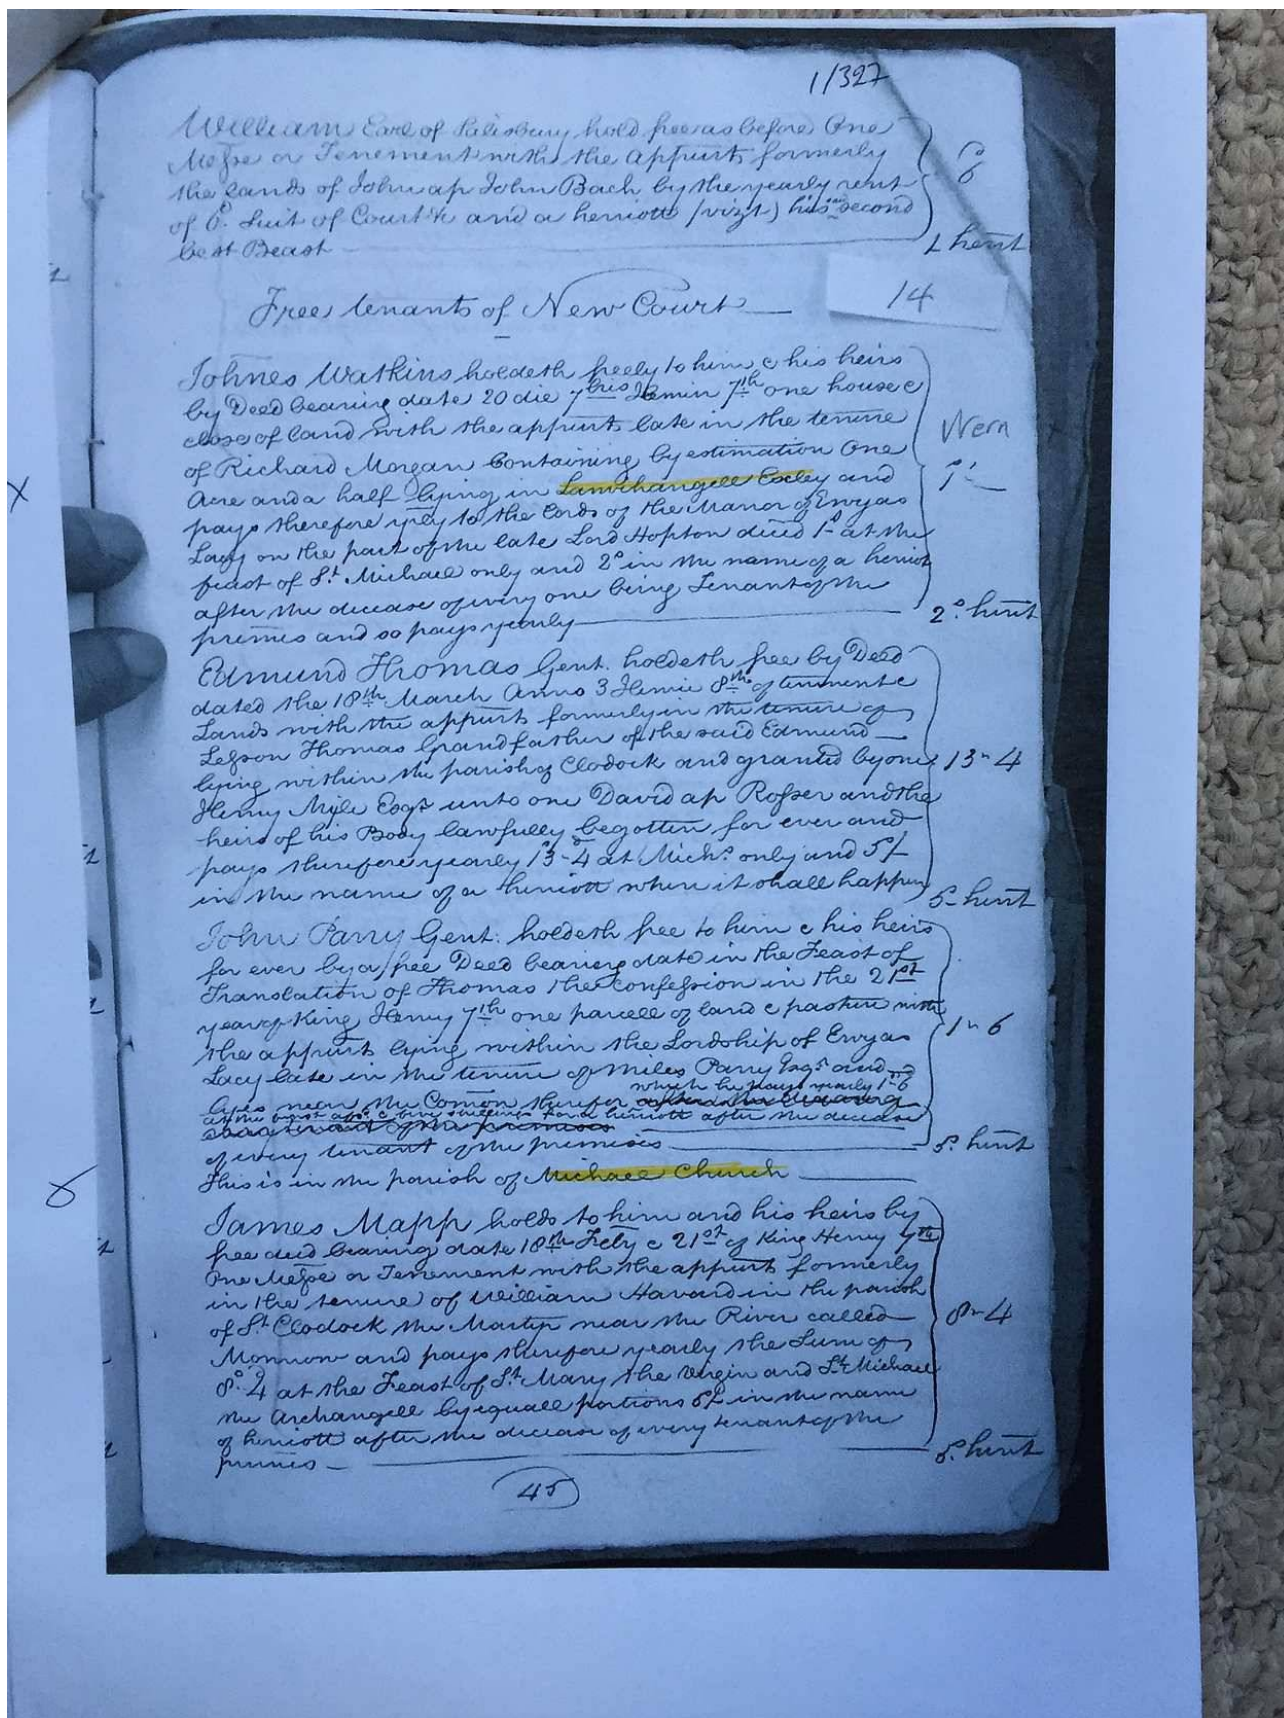 1/327
William Earl of Salisbury hold free as before One
Messe or Tenement with the appurts formerly
the Lands of John ap John Bach by the yearly rent
of 6d. Suit of Court & and a heriott (vizt) his second
best Beast
1 herit
Free tenants of New Court
14
Johnes Watkins holdeth freely to him & his heirs
by Deed bearing date 20 die 7bris Henrin 7th one house &
close of land with the appurts late in the tenure
of Richard Morgan Containing by estimation One
Acre and a half lying in Lanvihangell Escley and
pays therefore yrly to the Lords of the Manor of Ewyas
Lacy on the part of the late Lord Hopton deced 1s at the
feast of St. Michael only and 2s in the name of a heriot
after the decease of every one being Tenant of the
premes and so pays yearly
2s. herit
Edmund Thomas Gent. holdeth free by Deed
dated the 18th March Anno 3 Henrie 8th of tenement &
Lands with the appurts formerly in the tenure of
Thomas Grandfather of the said Edmund
lying within the parish of Clodock and granted by one
13 - 4
Henry Myle Esqr unto one David ap Rosser and the
heirs of his Body lawfully begotten for ever and
pays therefore yearly 13 - 4 at Michs. only and 5/
in the name of a heriott when it shall happen
5 - herit
John Parry Gent. holdeth free to him & his heirs
for ever by a free Deed bearing date in the Feast of
Translation of Thomas the Confession in the 21st
year of King Henry 7th one parcell of land & pasture with
the appurts lying within the Lordship of Ewyas
1 - 6
Lacy late in the tenure of Miles Parry Esqr. and
which he pays yearly 1s-6
lyes near the Comon therefor
at the feast & five shillings for a heriott after the decease
of every tenant of the premises
5s. herit
This is in the parish of Michael Church
James Mapp holds to him and his heirs by
free deed bearing date 18th Feby & 21st of King Henry 7th
One Messe or Tenement with the appurts formerly
in the tenure of William Havard in the parish
of St Clodock the Martyr near the River called
8 - 4
Monnow and pays therefore yearly the Sum of
8s. 4 at the Feast of St. Mary the Virgin and St. Michael
the Archangell by equall portions 5/ in the name
of heriott after the decease of every tenant of the
premes
5s. herit
45